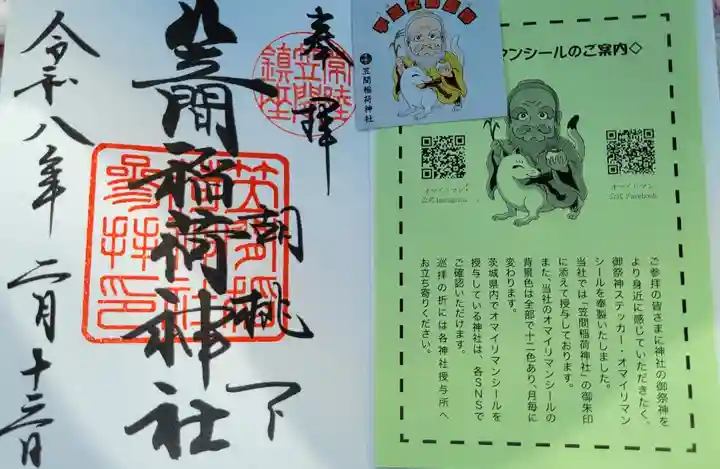 奉拝
常陸
笠間
鎮座
胡桃下
笠間稲荷神社
参拝之印
令和八年二月十三日
宇迦之御魂神
笠間稲荷神社
マンシールのご案内◇
オマイリマン
公式 Instagram
オマイリマン
公式 Facebook
ご参拝の皆さまに神社の御祭神を
より身近に感じていただきたく、
御祭神ステッカー・オマイリマン
シールを奉製いたしました。
当社では「笠間稲荷神社」の御朱印
に添えて授与しております。
また、当社のオマイリマンシールの
背景色は全部で十二色あり、月毎に
変わります。
茨城県内でオマイリマンシールを
授与している神社は、各SNSで
ご確認いただけます。
巡拝の折には各神社授与所へ
お立ち寄りください。